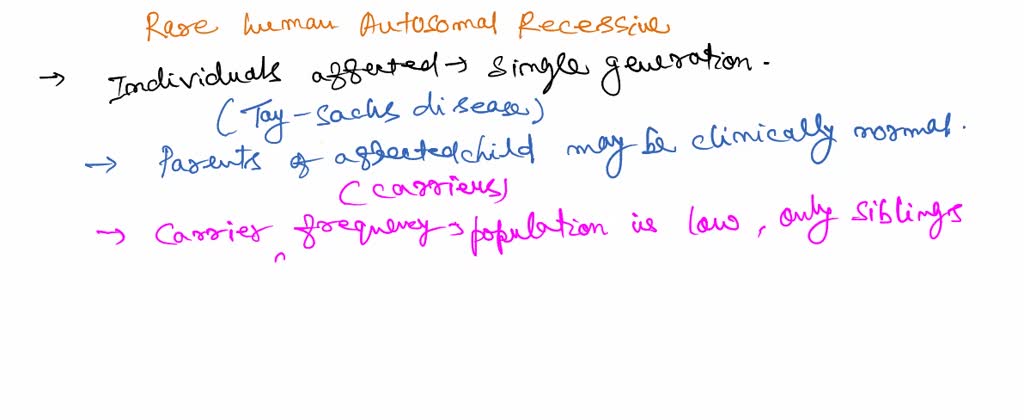 Rare human Autosomal Recessive
→ Individuals affected → single generation.
(Tay-sachs disease)
→ Parents of affected child may be clinically normal.
(carriers)
→ Carrier frequency → population is low, only siblings